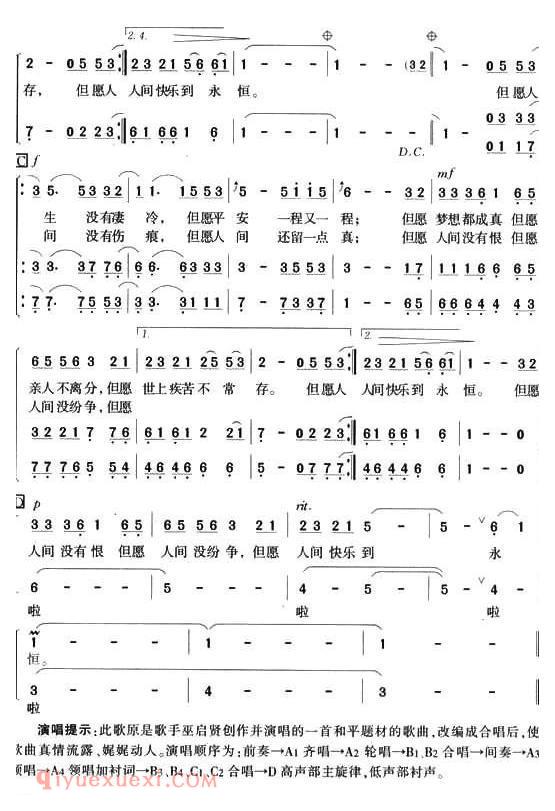 2.4.
2 - 0 5 5 3 : 2 3 2 1 5 5 6 6 1 1 - - - 1 - - (3 2 1 - - 0 5 5 3
存， 但愿人 人间快乐到 永 恒。 但愿人
0 3 3 3
7 - 0 2 2 3 : 6 1 6 6 1 6 1 - - - 1 - - 1 - - 0 1 1 7
D.C.
C f mf
3 5. 5 3 3 2 1 1. 1 5 5 3 5 - 5 1 1 5 6 - - 3 2 3 3 3 6 1 6 5
生 没有凄 冷， 但愿平 安 一程又一 程； 但愿 梦想都成真 但愿
间 没有伤 痕， 但愿人 间 还留一点 真； 但愿 人间没有恨 但愿
3 3. 3 7 7 6 6 6. 6 3 3 3 3 - 3 3 3 3 3 - - 1 7 1 1 1 6 6 6 5
7 7. 7 5 5 3 3 3. 3 1 1 1 7 - 7 3 3 7 1 - - 6 5 6 6 6 4 4 4 3
1. 2.
6 5 5 6 3 2 1 2 3 2 1 2 5 5 3 2 - 0 5 5 3 : 2 3 2 1 5 6 6 1 1 - - 0 5
亲人不离分，但愿 世上疾苦不 常 存。 但愿人 人间快乐到 永 恒。 但愿
人间没纷争，但愿
3 2 2 1 7 7 6 6 1 6 1 2 2 2 1 7 - 0 7 7 7 : 6 1 6 6 1 6 1 - - 0
7 7 7 6 5 5 4 4 6 4 4 6 6 6 5 - 0 7 7 7 : 4 6 4 4 6 6 1 - - 0
D p rit.
3 3 3 6 1 6 5 6 5 5 6 3 2 1 2 3 2 1 5 - 5 - V 6 1
人间没有恨 但愿 人间没纷争，但愿 人间快乐到 永
6 - - - 5 - - - 4 - - - 5 - V 4 -
啦 啦 啦
1 - - - 1 - - - 1 - - -
恒。
3 - - - 4 - - - 3 - - -
啦 啦
演唱提示：此歌原是歌手巫启贤创作并演唱的一首和平题材的歌曲，改编成合唱后，使
歌曲真情流露、娓娓动人。演唱顺序为：前奏→A1 齐唱→A2 轮唱→B1、B2 合唱→间奏→A3
领唱→A4 领唱加衬词→B3、B4、C1、C2 合唱→D 高声部主旋律，低声部衬声。
qiyuexuexi.com